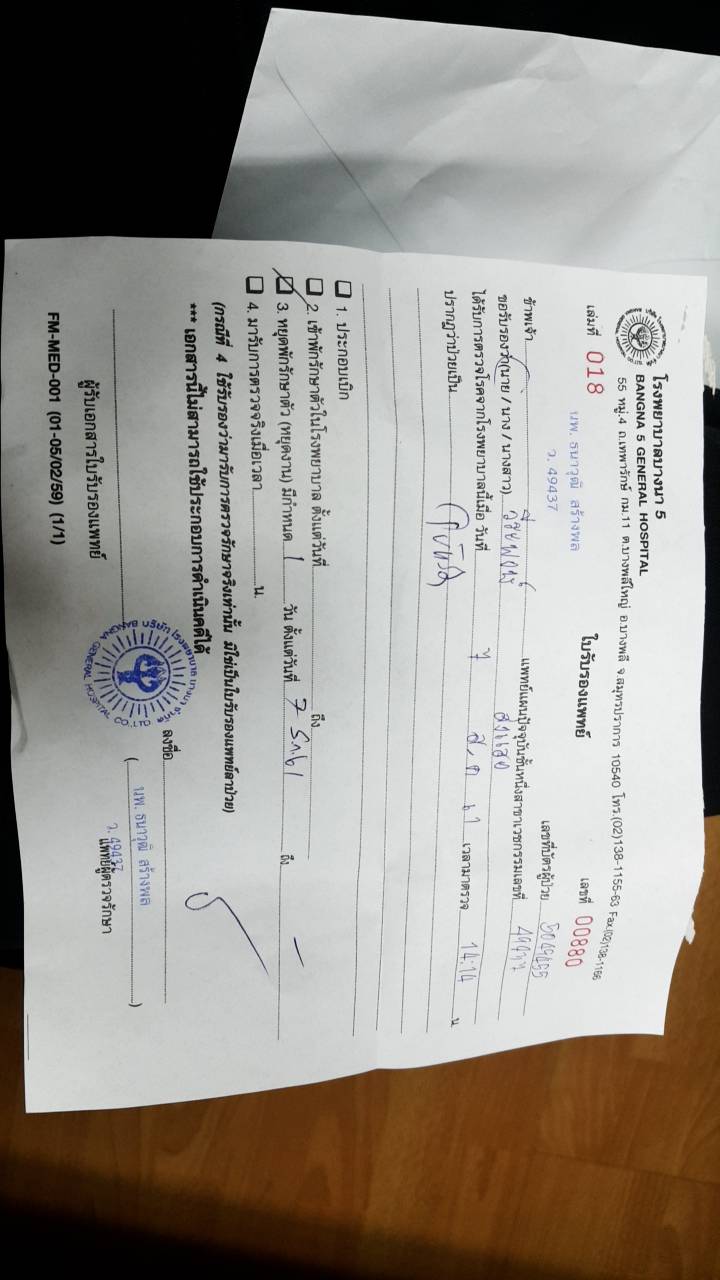 โรงพยาบาลบางนา 5
BANGNA 5 GENERAL HOSPITAL
55 หมู่.4 ถ.เทพารักษ์ กม.11 ต.บางพลีใหญ่ อ.บางพลี จ.สมุทรปราการ 10540 โทร.(02)138-1155-63 Fax.(02)138-1166
เล่มที่ 018
ใบรับรองแพทย์
เลขที่ 00880
นพ. ธนาวุฒิ สร้างพล
ว. 49437
เลขที่บัตรผู้ป่วย 5049455
ข้าพเจ้า แพทย์แผนปัจจุบันชั้นหนึ่งสาขาเวชกรรมเลขที่ 49437
ขอรับรองว่า(นาย / นาง / นางสาว) วีระพงษ์
ได้รับการตรวจโรคจากโรงพยาบาลนี้เมื่อ วันที่ 7 61 เวลามาตรวจ 14:14 น
ปรากฏว่าป่วยเป็น
1. ประกอบเบิก
2. เข้าพักรักษาตัวในโรงพยาบาล ตั้งแต่วันที่ ถึง
3. หยุดพักรักษาตัว (หยุดงาน) มีกำหนด 1 วัน ตั้งแต่วันที่ 7 61 ถึง -
4. มารับการตรวจจริงเมื่อเวลา น.
(กรณีที่ 4 ใช้รับรองว่ามารับการตรวจรักษาจริงเท่านั้น มิใช่เป็นใบรับรองแพทย์ลาป่วย)
*** เอกสารนี้ไม่สามารถใช้ประกอบการดำเนินคดีได้
บริษัท โรงพยาบาล บางนา จำกัด
BANGNA GENERAL HOSPITAL CO.,LTD.
ลงชื่อ
(นพ. ธนาวุฒิ สร้างพล)
ว. 49437
แพทย์ผู้ตรวจรักษา
ผู้รับเอกสารใบรับรองแพทย์
FM-MED-001 (01-05/02/59) (1/1)